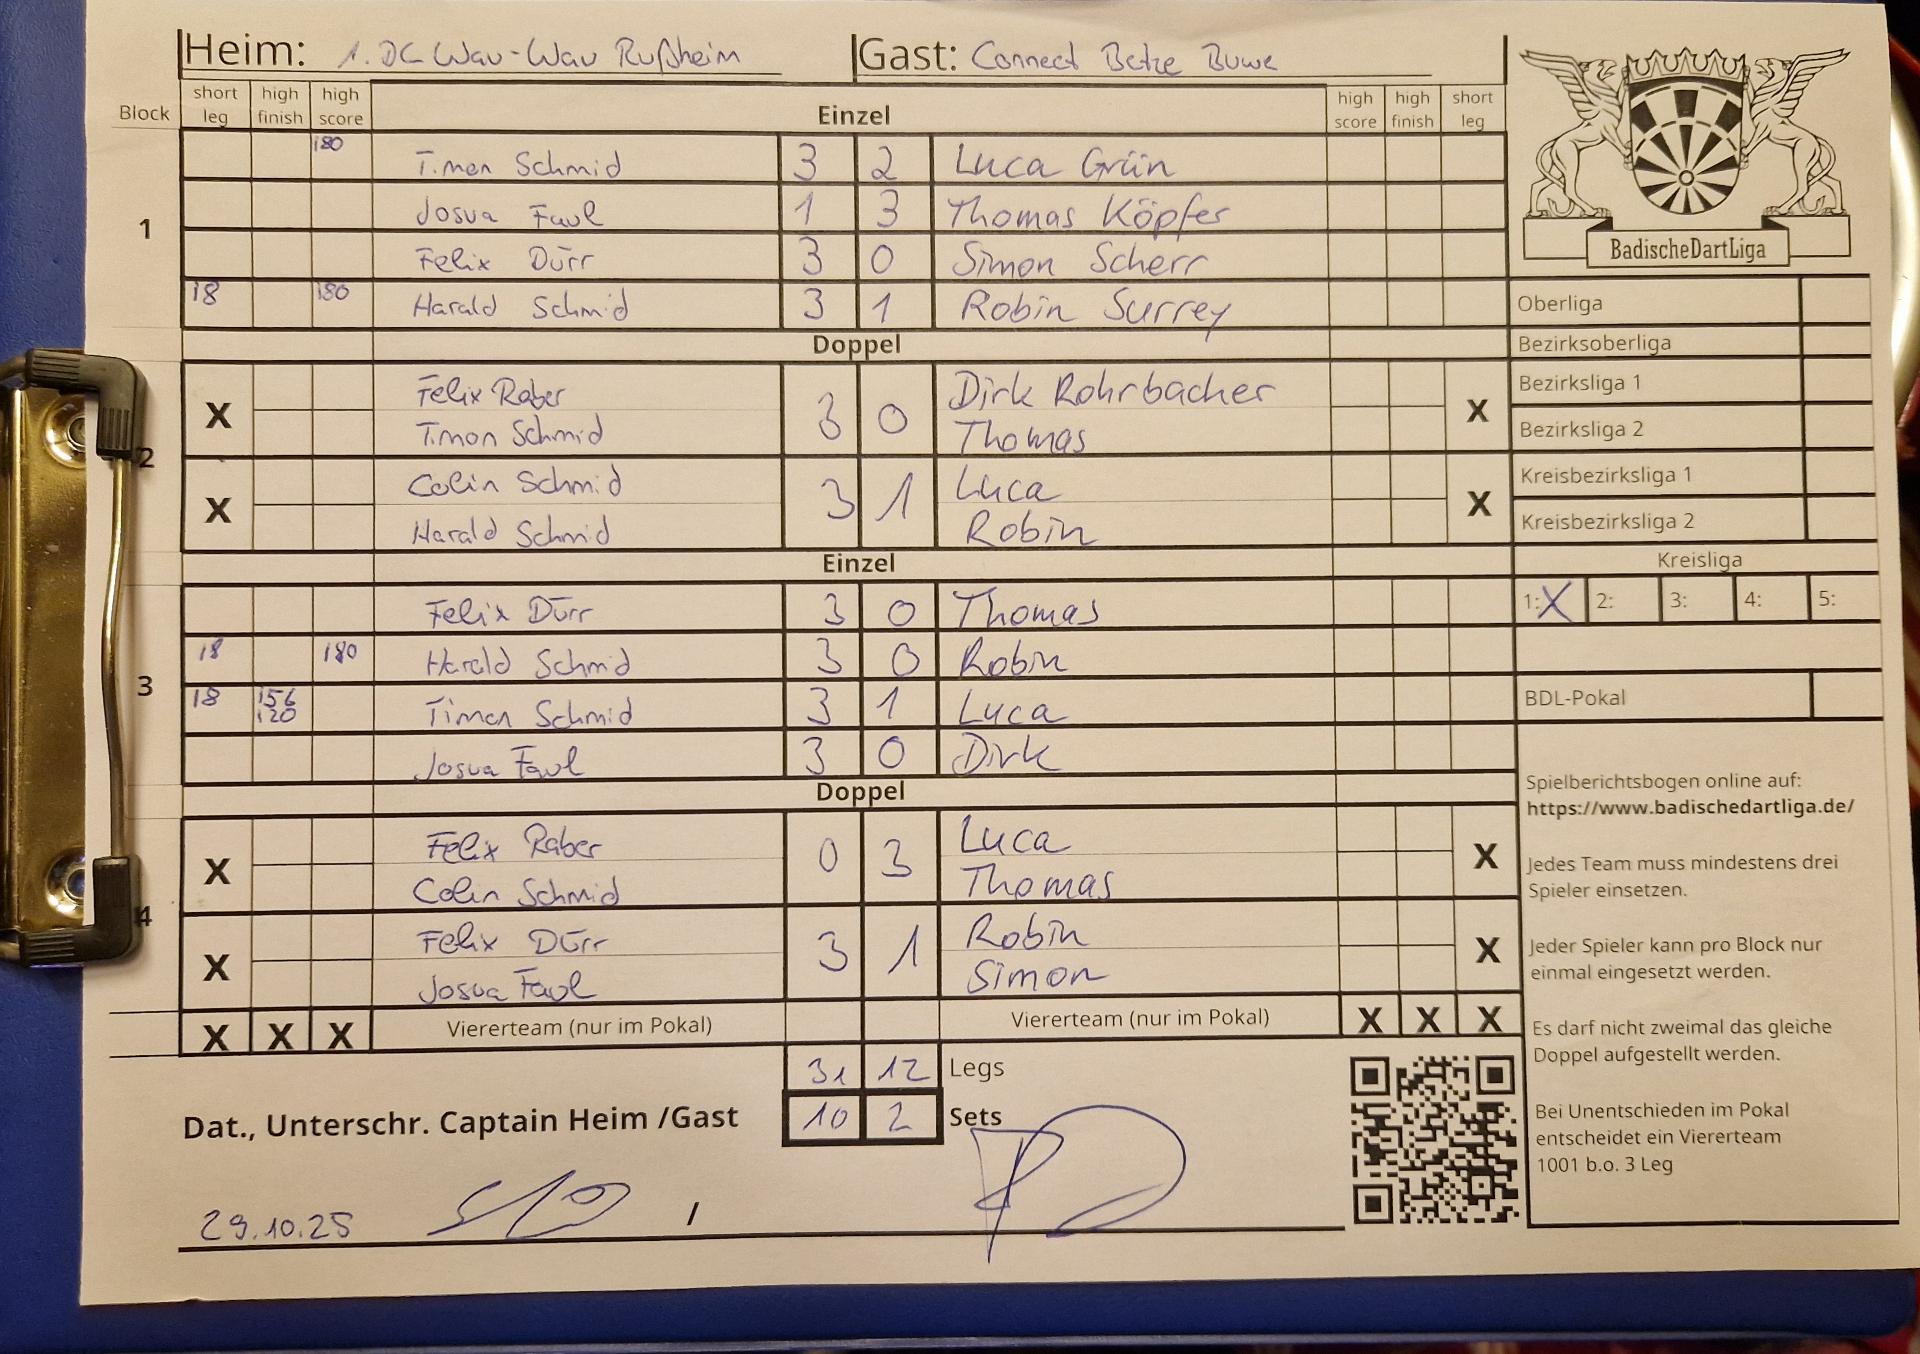 Heim: 1. DC Wau-Wau Rußheim Gast: Connect Betze Buwe
Block short leg high finish high score Einzel high score high finish short leg
1
180 Timon Schmid 3 2 Luca Grün
Josua Faul 1 3 Thomas Köpfer
Felix Dürr 3 0 Simon Scherr
18 180 Harald Schmid 3 1 Robin Surrey
Doppel
2
X Felix Raber 3 0 Dirk Rohrbacher X
Timon Schmid Thomas
X Colin Schmid 3 1 Luca X
Harald Schmid Robin
Einzel
3
Felix Dürr 3 0 Thomas
18 180 Harald Schmid 3 0 Robin
18 156 120 Timon Schmid 3 1 Luca
Josua Faul 3 0 Dirk
Doppel
4
X Felix Raber 0 3 Luca X
Colin Schmid Thomas
X Felix Dürr 3 1 Robin X
Josua Faul Simon
X X X Viererteam (nur im Pokal) Viererteam (nur im Pokal) X X X
31 12 Legs
Dat., Unterschr. Captain Heim /Gast 10 2 Sets
29.10.25 /
BadischeDartLiga
Oberliga
Bezirksoberliga
Bezirksliga 1
Bezirksliga 2
Kreisbezirksliga 1
Kreisbezirksliga 2
Kreisliga
1: X 2: 3: 4: 5:
BDL-Pokal
Spielberichtsbogen online auf:
https://www.badischedartliga.de/
Jedes Team muss mindestens drei
Spieler einsetzen.
Jeder Spieler kann pro Block nur
einmal eingesetzt werden.
Es darf nicht zweimal das gleiche
Doppel aufgestellt werden.
Bei Unentschieden im Pokal
entscheidet ein Viererteam
1001 b.o. 3 Leg